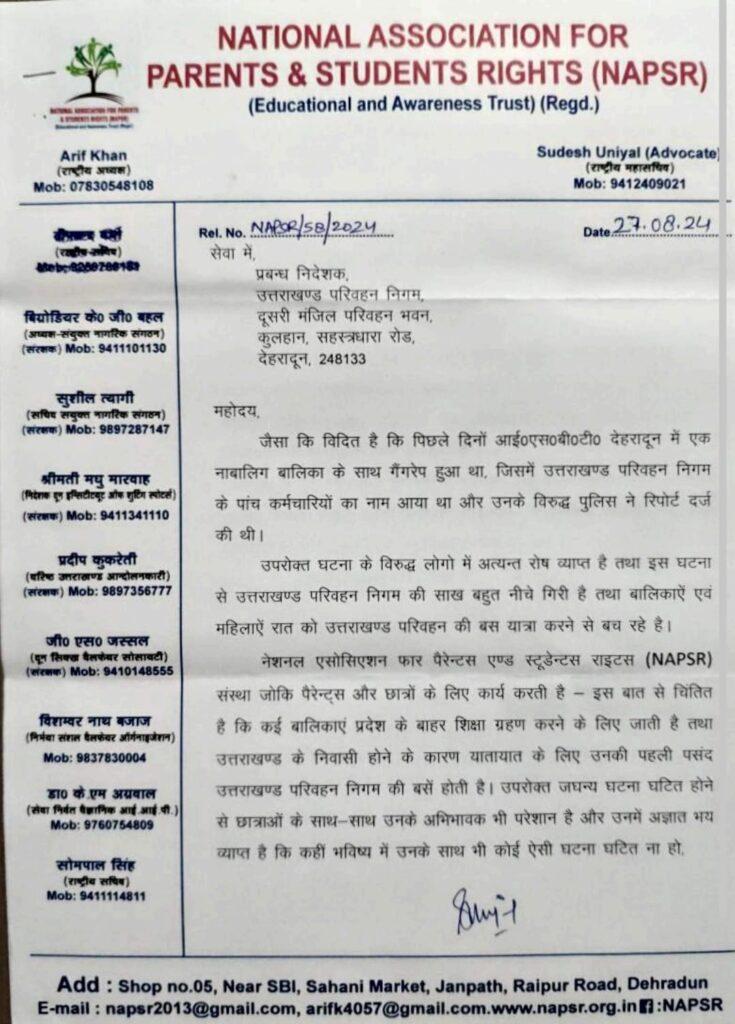 NATIONAL ASSOCIATION FOR
PARENTS & STUDENTS RIGHTS (NAPSR)
(Educational and Awareness Trust) (Regd.)
NATIONAL ASSOCIATION FOR PARENTS
& STUDENTS RIGHTS (NAPSR)
(Educational and Awareness Trust) (Regd.)
Arif Khan
(राष्ट्रीय अध्यक्ष)
Mob: 07830548108
Sudesh Uniyal (Advocate)
(राष्ट्रीय महासचिव)
Mob: 9412409021
(राष्ट्रीय सचिव)
बिग्रेडियर के० जी० बहल
(अध्यक्ष-संयुक्त नागरिक संगठन)
(संरक्षक) Mob: 9411101130
सुशील त्यागी
(सचिव संयुक्त नागरिक संगठन)
(संरक्षक) Mob: 9897287147
श्रीमती मधु मारवाह
(निदेशक दून इन्सिटीटयूट ऑफ शुटिंग स्पोर्टस)
(संरक्षक) Mob: 9411341110
प्रदीप कुकरेती
(वरिष्ठ उत्तराखण्ड आन्दोलनकारी)
(संरक्षक) Mob: 9897356777
जी० एस० जस्सल
(दून सिक्ख वैलफेयर सोसायटी)
(संरक्षक) Mob: 9410148555
विशम्वर नाथ बजाज
(निर्भया संशल वैलफेयर ऑर्गनाइजेशन)
Mob: 9837830004
डा० के एम अग्रवाल
(सेवा निर्वत वैज्ञानिक आई.आई.पी.)
Mob: 9760754809
सोमपाल सिंह
(राष्ट्रीय सचिव)
Mob: 9411114811
Rel. No. NAPSR/SB/2024
Date 27.08.24
सेवा में,
प्रबन्ध निदेशक,
उत्तराखण्ड परिवहन निगम,
दूसरी मंजिल परिवहन भवन,
कुलहान, सहस्त्रधारा रोड,
देहरादून, 248133
महोदय,
जैसा कि विदित है कि पिछले दिनों आई०एस०बी०टी० देहरादून में एक
नाबालिग बालिका के साथ गैंगरेप हुआ था, जिसमें उत्तराखण्ड परिवहन निगम
के पांच कर्मचारियों का नाम आया था और उनके विरुद्ध पुलिस ने रिपोर्ट दर्ज
की थी।
उपरोक्त घटना के विरुद्ध लोगो में अत्यन्त रोष व्याप्त है तथा इस घटना
से उत्तराखण्ड परिवहन निगम की साख बहुत नीचे गिरी है तथा बालिकाऐं एवं
महिलाऐं रात को उत्तराखण्ड परिवहन की बस यात्रा करने से बच रहे है।
नेशनल एसोसिएशन फार पैरेन्टस एण्ड स्टूडेन्टस राइटस (NAPSR)
संस्था जोकि पैरेन्ट्स और छात्रों के लिए कार्य करती है – इस बात से चिंतित
है कि कई बालिकाएं प्रदेश के बाहर शिक्षा ग्रहण करने के लिए जाती है तथा
उत्तराखण्ड के निवासी होने के कारण यातायात के लिए उनकी पहली पसंद
उत्तराखण्ड परिवहन निगम की बसें होती है। उपरोक्त जघन्य घटना घटित होने
से छात्राओं के साथ–साथ उनके अभिभावक भी परेशान है और उनमें अज्ञात भय
व्याप्त है कि कहीं भविष्य में उनके साथ भी कोई ऐसी घटना घटित ना हो,
Add : Shop no.05, Near SBI, Sahani Market, Janpath, Raipur Road, Dehradun
E-mail : napsr2013@gmail.com, arifk4057@gmail.com.www.napsr.org.in f:NAPSR